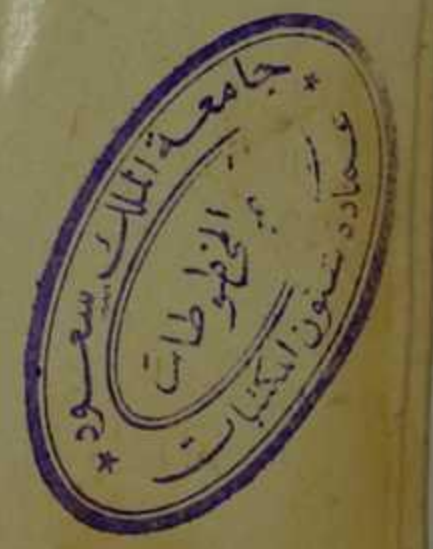 * جامعة الملك سعود *
عمادة شئون المكتبات
المخطوطات